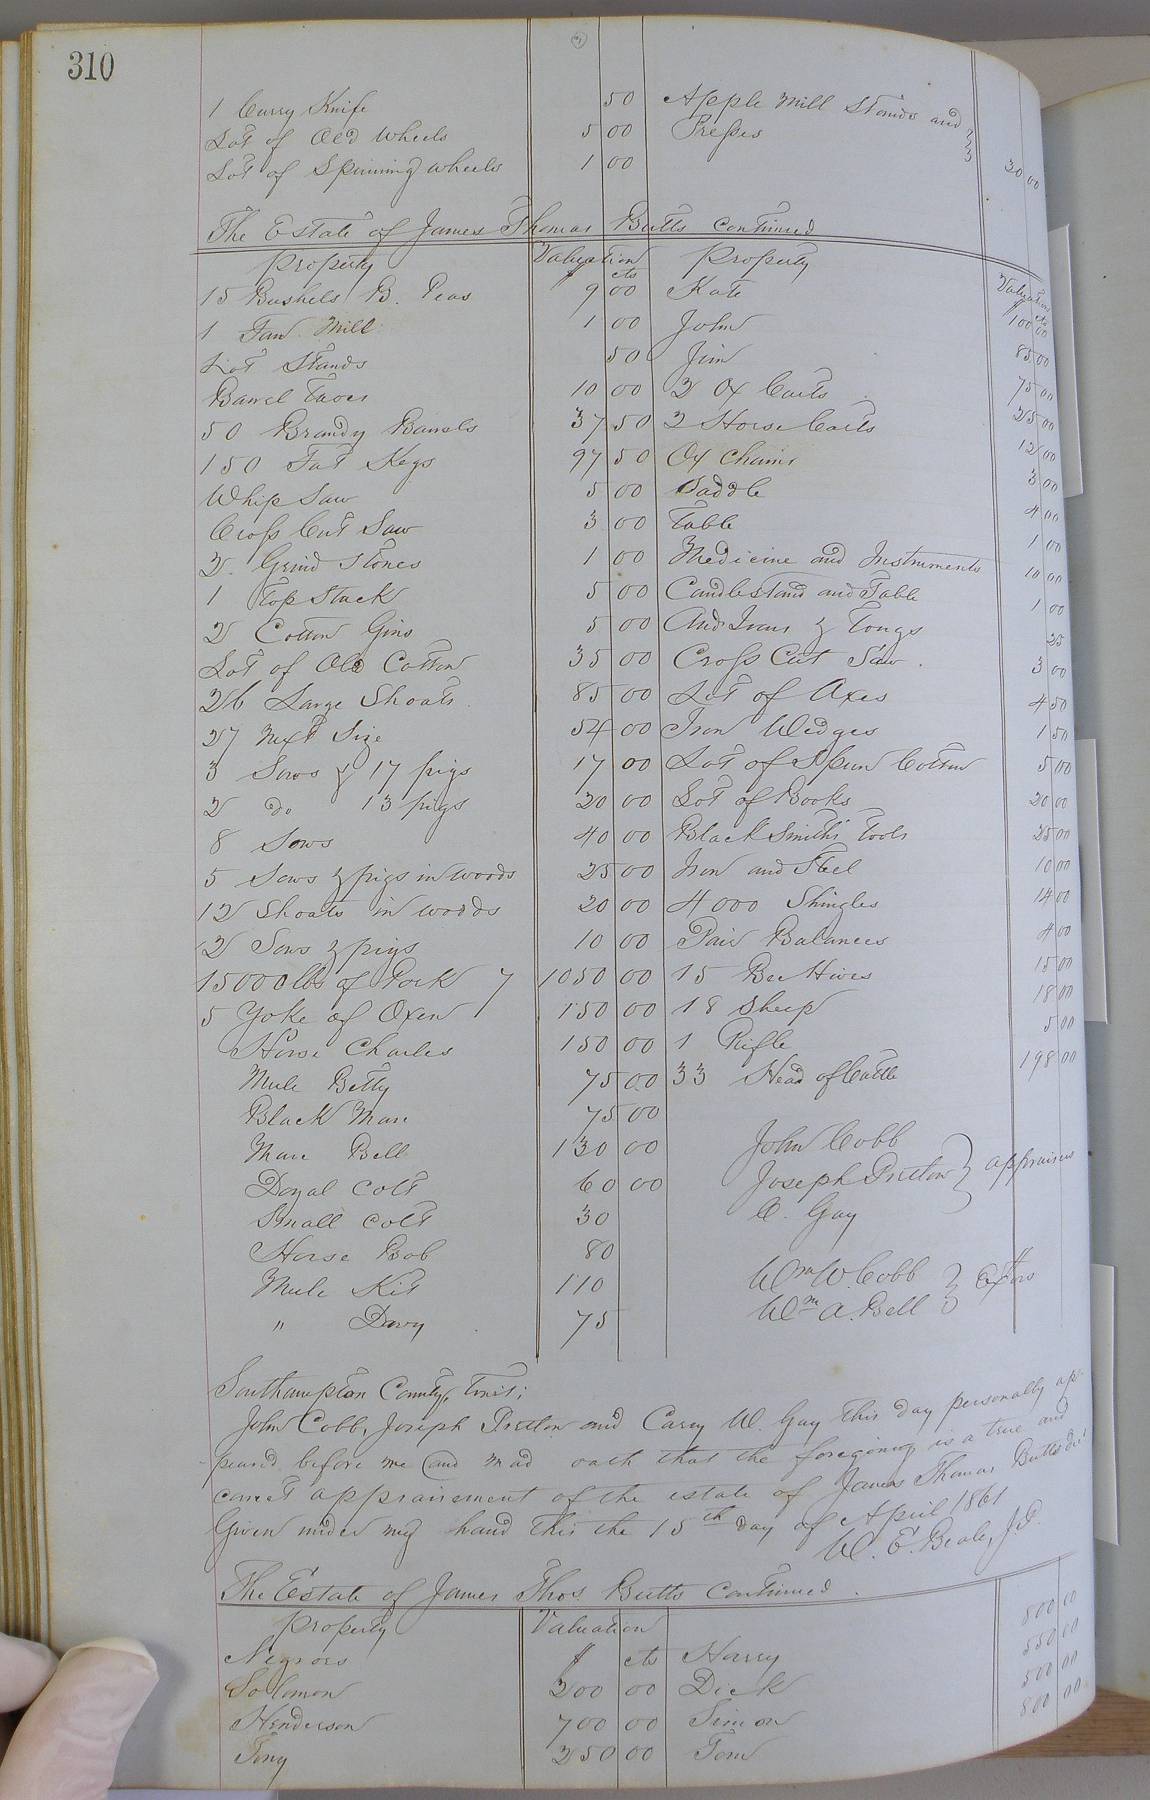 310
1 Curry Knife 50 Apple Mill Stands and
Lot of Old Wheels 5 00 Presses
Lot of Spinning wheels 1 00 30 00
The Estate of James Thomas Butts continued
Property Valuation Property Valuation
$ cts $ cts
15 Bushels B. Peas 9 00 Kate 100 00
1 Fan Mill 1 00 John 85 00
Lot Stands 50 Jim 75 00
Barrel 10 00 2 Ox Carts 25 00
50 Brandy Barrels 37 50 2 Horse Carts 12 00
150 Fat Kegs 97 50 Ox Chains 3 00
Whip Saw 5 00 Saddle 4 00
Cross Cut Saw 3 00 Table 1 00
2 Grind Stones 1 00 Medicine and Instruments 10 00
1 Top Stack 5 00 Candlestand and Table 1 00
2 Cotton Gins 5 00 And Irons & Tongs 25
Lot of Old Cotton 35 00 Cross Cut Saw 3 00
26 Large Shoats 85 00 Lot of Axes 4 50
27 Next Size 54 00 Iron Wedges 1 50
3 Sows & 17 pigs 17 00 Lot of Spun Cotton 5 00
2 do 13 pigs 20 00 Lot of Books 20 00
8 Sows 40 00 Black Smiths Tools 25 00
5 Sows & pigs in woods 25 00 Iron and Steel 10 00
12 Shoats in woods 20 00 4000 Shingles 14 00
2 Sows & pigs 10 00 Pair Balances 4 00
15000 lbs of Pork 7 1050 00 15 Bee Hives 15 00
5 Yoke of Oxen 150 00 18 Sheep 18 00
Horse Charles 150 00 1 Rifle 5 00
Mule Betty 75 00 33 Head of Cattle 198 00
Black Mare 75 00
Mare Bell 130 00 John Cobb
60 00 Joseph Pretlow } appraisers
Small Colt 30 C. Gay
Horse Bob 80
Mule Kit 110 Wm W. Cobb } Extors
" Davy 75 Wm A. Bell
Southampton County, towit;
John Cobb, Joseph Pretlow and Carey W. Gay this day personally ap-
peared before me and mad oath that the foregoing is a true and
correct appraisement of the estate of James Thomas Butts decd
Given under my hand this the 15th day of April 1861
W. E. Beale, J.P.
The Estate of James Thos Butts continued.
Property Valuation
Negroes $ cts Harry 800 00
Solomon 300 00 Dick 550 00
Henderson 700 00 Simon 500 00
Tony 250 00 Tom 800 00